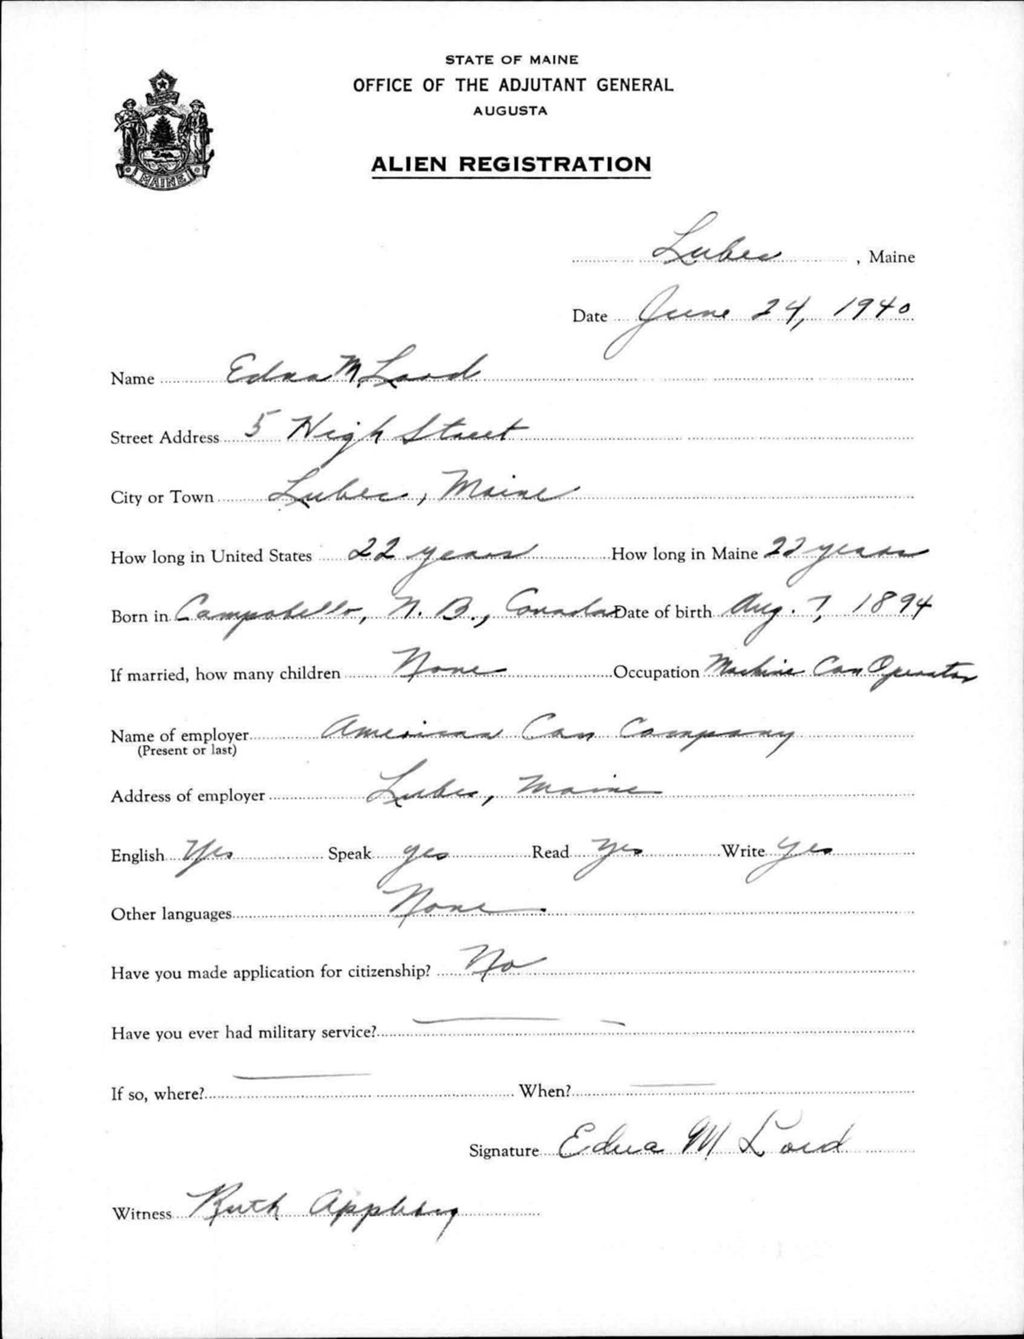 STATE OF MAINE
OFFICE OF THE ADJUTANT GENERAL
AUGUSTA
MAINE
ALIEN REGISTRATION
Lubec, Maine
Date June 24, 1940
Name Edna M. Lord
Street Address 5 High Street
City or Town Lubec, Maine
How long in United States 22 years How long in Maine 22 years
Born in Campobello, N. B., Canada Date of birth Aug. 7, 1894
If married, how many children None Occupation Machine Can Operator
Name of employer American Can Company
(Present or last)
Address of employer Lubec, Maine
English Yes Speak yes Read Yes Write yes
Other languages None
Have you made application for citizenship? No
Have you ever had military service? —
If so, where? — When? —
Signature Edna M Lord
Witness Ruth Appleby